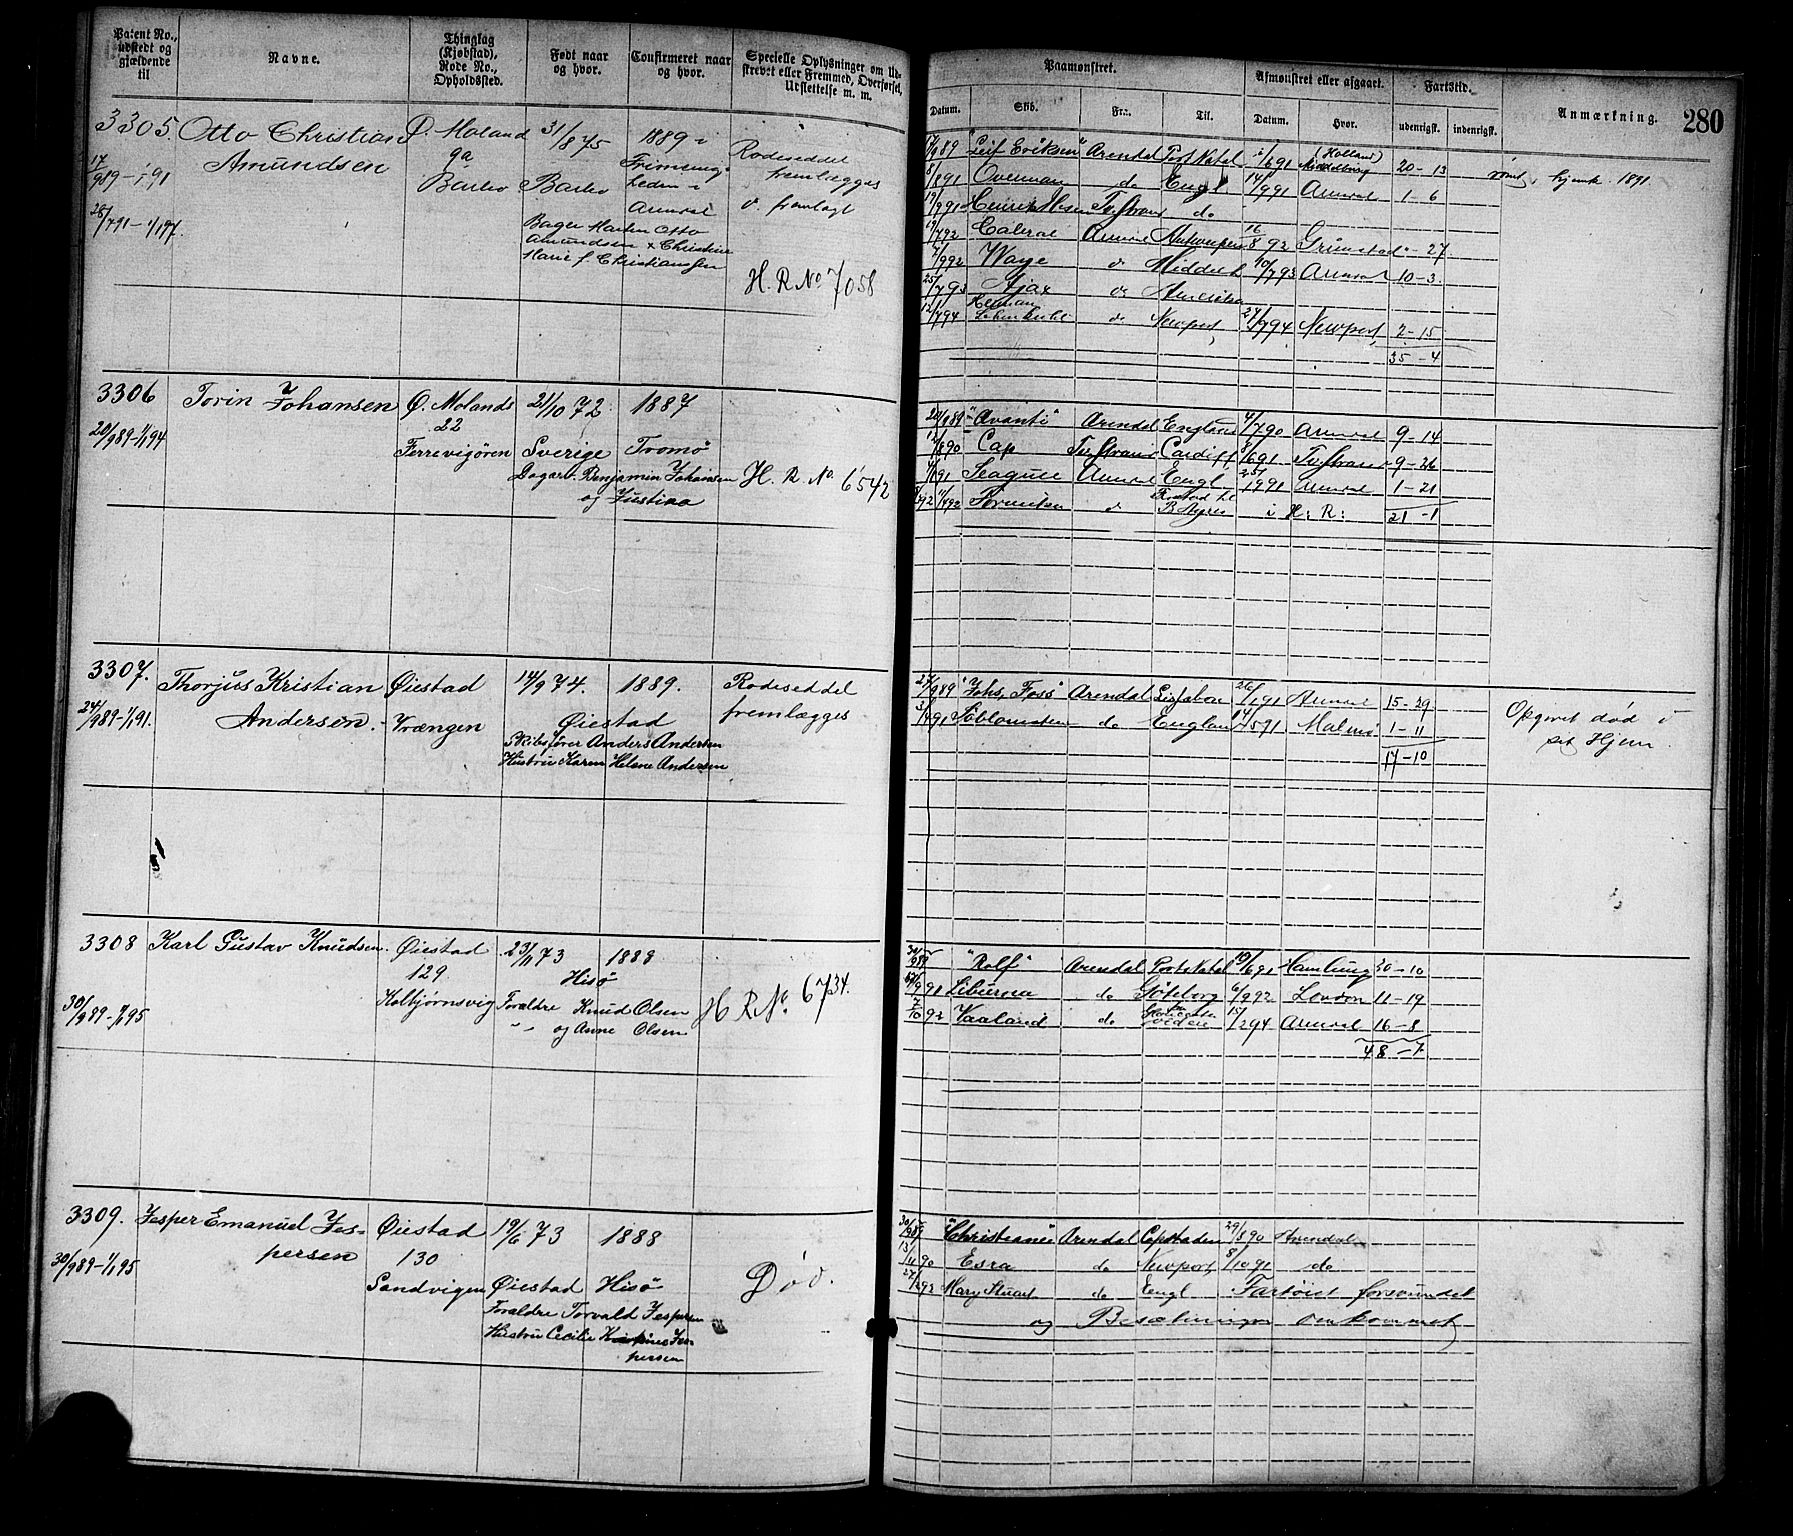 Patent No., udstedt og gjældende til
Navne.
Thinglag (Kjøbstad), Rode No., Opholdssted.
Født naar og hvor.
Confirmeret naar og hvor.
Specielle Oplysninger om Udstrevet eller Fremmed, Overførsel, Udslettelse m. m.
Paamønstret.
Afmønstret eller afgaaet.
Fartstid.
Anmærkning.
280
Datum. Skib. Fra. Til. Datum. Hvor. udenrigsk. indenrigsk.
3305 Otto Christian Amundsen
17/9 89 - 1/1 91
28/7 91 - 1/1 97
Ø. Moland
9a
Barbo
31/8 75
Barbo
1889 i
Rodeseddel
fremlægges
d. fremlagt
Bager Marten Otto
Amundsen & Christine
Marie f. Christiansen
H. R. No 7058
17/9 89 "Leif Erikson" Arendal Port Natal 2/6 91 (Holland) Middelburg 20 - 13
Overman do Engl 14/9 91 Arendal 1 - 6
do
Arendal Antwerpen 16/8 92 Grimstad - 27
Wage do 10/7 93 Arendal 10 - 3
25/7 93 Ajax do Amerika
12/7 94 Herman do Newport 27/9 94 Newport 2 - 15
35 - 4
rømt, hjemk. 1891
3306 Torin Johansen
20/9 89 - 1/1 94
Ø. Molands
22
Ferrevigören
21/10 72
Sverige
1887
Tromø
Dagarb. Benjamin Johansen
og Justina
H. R. No. 6542
20/9 89 "Avanti" Arendal England 4/7 90 Arendal 9 - 14
Cap Cardiff 8/6 91 9 - 26
Arendal Engl 25/9 91 Arendal 1 - 21
do B Ayres i H: R: 21 - 1
3307. Thorjus Kristian
Andersen.
24/9 89 - 1/1 91.
Øiestad
Vrængen
14/9 74.
Øiestad
1889.
Rodeseddel
fremlægges
Skibsfører Anders Andersen
Hustru Karen Helene Andersen
24/9 89 "Johs. Foss" Arendal Lissabon 26/1 91 Arendal 15 - 29
do England 14/5 91 Malmø 1 - 11
17 - 10
Opgivet død i
sit Hjem.
3308 Karl Gustav Knudsen.
30/9 89 - 1/1 95
Øiestad
129
Kolbjørnsvig
23/11 73
Hisø
1888
Forældre Knud Olsen
" " og Anne Olsen
H R No. 6734.
30/9 89 "Rolf" Arendal Port Natal 19/6 91 Hamburg 20 - 10
Liburna do Göteborg 6/9 92 London 11 - 19
7/10 92 Vaaland do 15/2 94 Arendal 16 - 8
48 - 7
3309. Jesper Emanuel Jes-
persen
30/9 89 - 1/1 95
Øiestad
130
Sandvigen
19/6 73
Øiestad
1888
Hisø
Forældre Torvald Jespersen
Hustru Cecilie Jes-
persen
Død.
30/9 89 "Christiane" Arendal Capstaden 29/8 90 Arendal
13/11 90 Esra do Newport 8/10 91 do
27/2 92 Mary Stuart do Engl Fartøiet forsvundet
og Besætningen omkommet